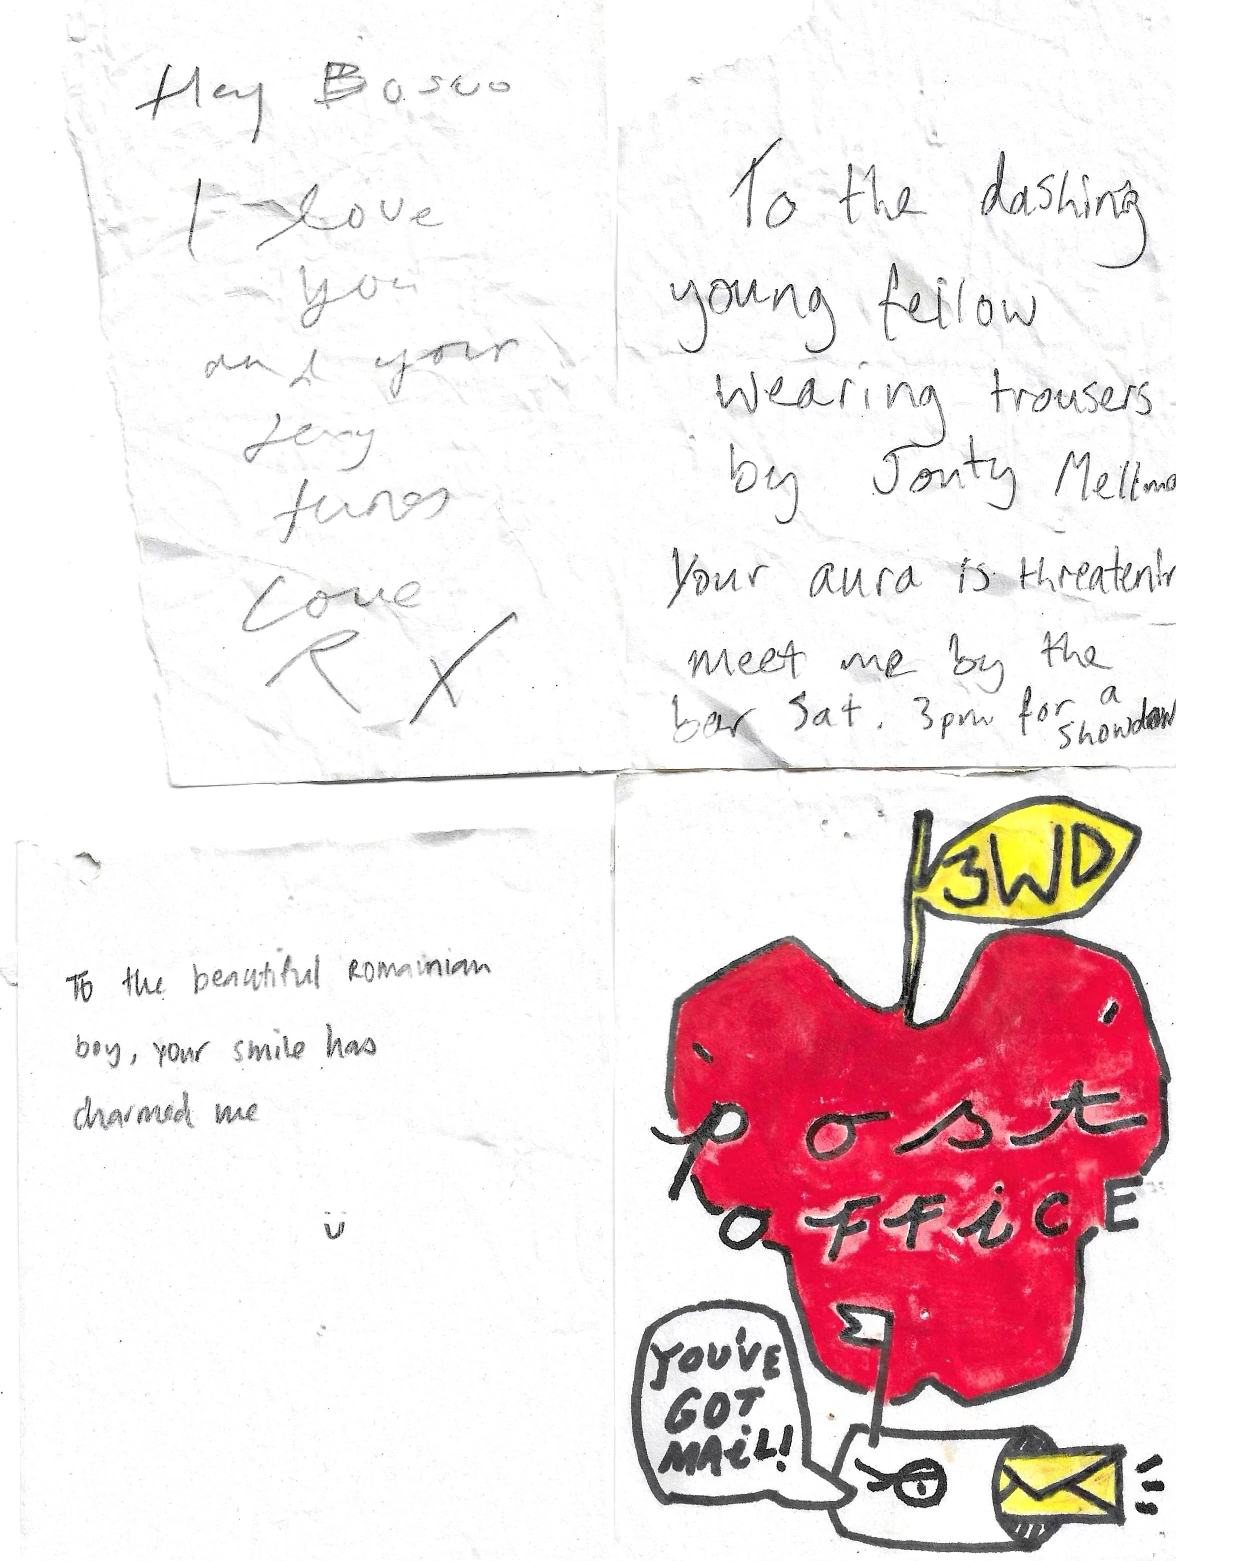 Hey Bosco
I love
you
and your
sexy
tunes
Love
R X
To the dashing
young fellow
wearing trousers
by Jonty Mellmo
Your aura is threatenin
meet me by the
bar Sat. 3pm for a
showdown
To the beautiful Romainian
boy, your smile has
charmed me
ü
3WD
post
oFFiCE
YOU'VE
GOT
MAiL!